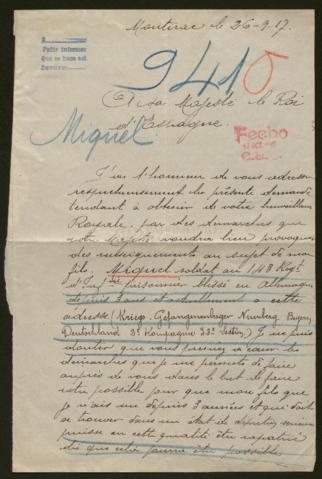 Pedir informes
Que se haga así
Monterac le 26-9-17
9410
A Sa Majesté le Roi
d'Espagne.
Miguel
Fecho
J'ai l'honneur de vous adresser
respectueusement la présente demande
tendant à obtenir de votre bienveillance
Royale, par des démarches que
votre Majesté voudra bien provoquer
des renseignements au sujet de mon
fils Miquel soldat au 148 Régt
d'Inf prisonnier blessé en Allemagne
depuis 3 ans et actuellement a cette
adresse (Kriegs-Gefangenenlager Nurnberg Bayern
Deutschland 3e Kompagnie) Je ne puis
douter que vous
démarches que je me permets de faire
auprès de vous dans le but de faire
votre possible pour que mon fils que
je n'ai vu depuis 3 années et qui doit
se trouver dans un état de
puisse en cette qualité être rapatrié
dès que cela pourra être possible